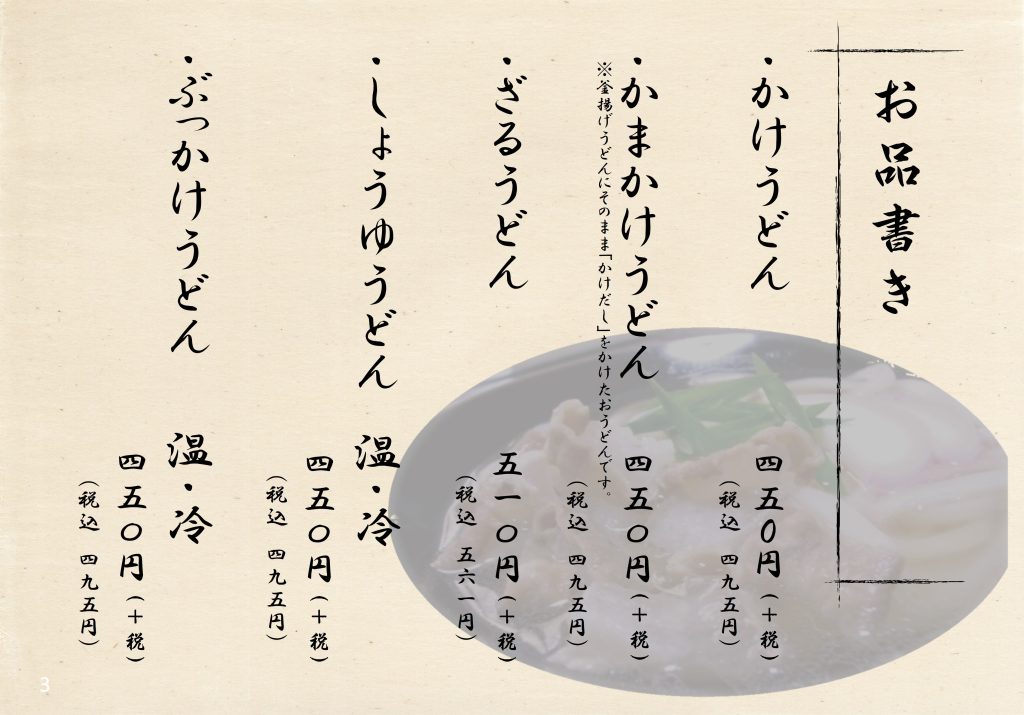 お品書き
・かけうどん
四五〇円（＋税）
（税込　四九五円）
・かまかけうどん
四五〇円（＋税）
※釜揚げうどんにそのまま「かけだし」をかけたおうどんです。
（税込　四九五円）
・ざるうどん
五一〇円（＋税）
（税込　五六一円）
・しょうゆうどん　温・冷
四五〇円（＋税）
（税込　四九五円）
・ぶっかけうどん　温・冷
四五〇円（＋税）
（税込　四九五円）
3